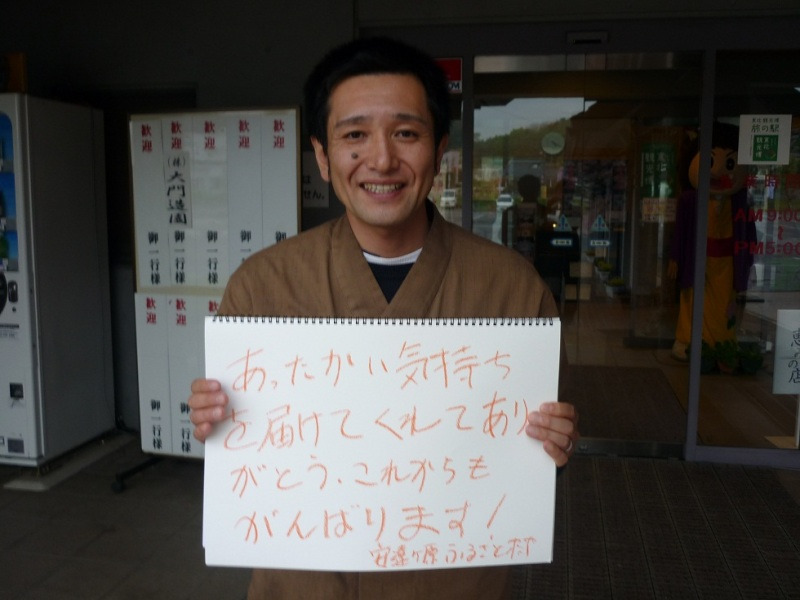 あったかい気持ち
を届けてくれてあり
がとう、これからも
がんばります!
安達ヶ原ふるさと村
歓迎 (株)大門造園 御一行様
歓迎 御一行様
歓迎 御一行様
歓迎 御一行様
歓迎 御一行様
歓迎 御一行様
歓迎 御一行様
歓迎
せん。
旅の駅
AM9:00
~
PM5:00
の店